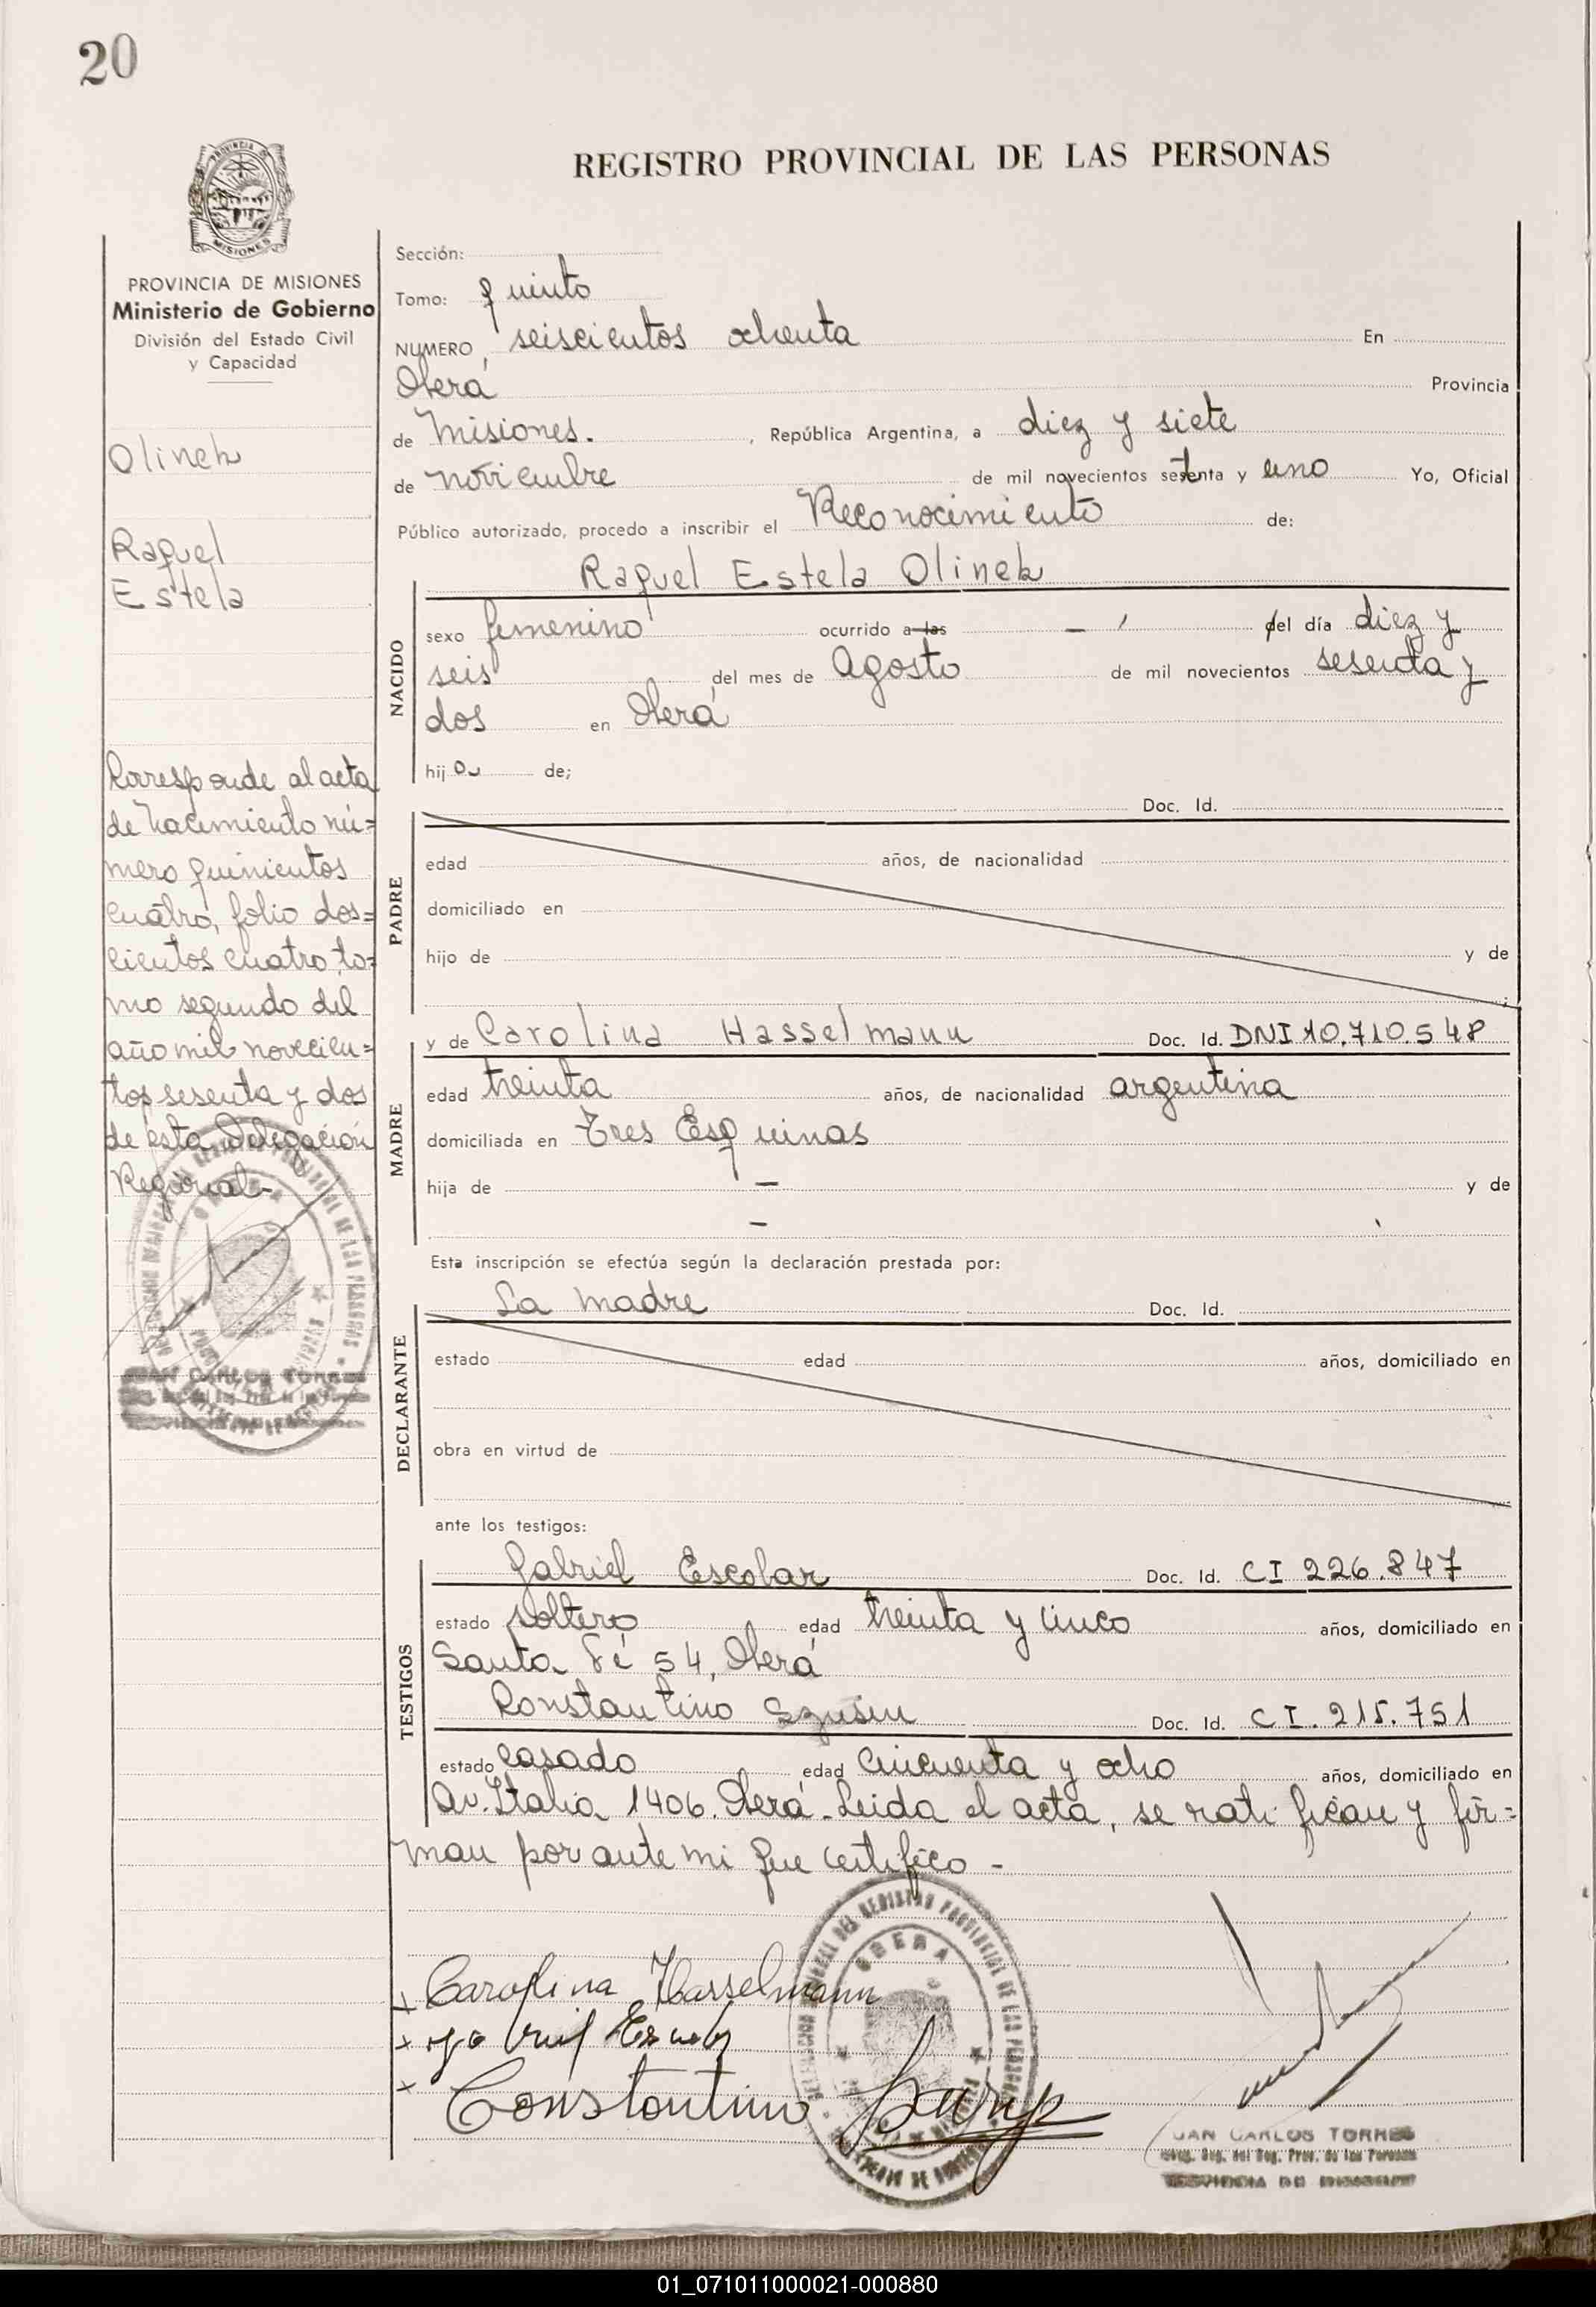 20
REGISTRO PROVINCIAL DE LAS PERSONAS
PROVINCIA DE MISIONES
Ministerio de Gobierno
División del Estado Civil
y Capacidad
Olinek
Raquel
Estela
Corresponde al acta
de nacimiento nú=
mero quinientos
cuatro, folio dos=
cientos cuatro, to=
mo segundo del
año mil novecien=
tos sesenta y dos
de esta Delegación
Regional-
JUAN CARLOS TORRES
Sección:
Tomo: quinto
NUMERO seiscientos ochenta En
Oberá Provincia
de Misiones. , República Argentina, a diez y siete
de noviembre de mil novecientos setenta y uno Yo, Oficial
Público autorizado, procedo a inscribir el Reconocimiento de:
Raquel Estela Olinek
NACIDO
sexo femenino ocurrido a las - del día diez y
seis del mes de Agosto de mil novecientos sesenta y
dos en Oberá
hija de;
PADRE
Doc. Id.
edad años, de nacionalidad
domiciliado en
hijo de y de
MADRE
y de Carolina Hasselmann Doc. Id. DNI 10.710.548
edad treinta años, de nacionalidad argentina
domiciliada en Tres Esquinas
hija de - y de
-
Esta inscripción se efectúa según la declaración prestada por:
DECLARANTE
La madre Doc. Id.
estado edad años, domiciliado en
obra en virtud de
ante los testigos:
TESTIGOS
Gabriel Escobar Doc. Id. CI 226.847
estado soltero edad treinta y cinco años, domiciliado en
Santa Fé 54, Oberá
Constantino Doc. Id. C I. 215.751
estado casado edad cincuenta y ocho años, domiciliado en
Av. Italia 1406. Oberá. Leida el acta, se ratifican y fir=
man por ante mi que certifico -
OBERA
Carolina Hasselmann
Constantino
JUAN CARLOS TORRES
Reg. Prov. de las Personas
PROVINCIA DE MISIONES
01_071011000021-000880